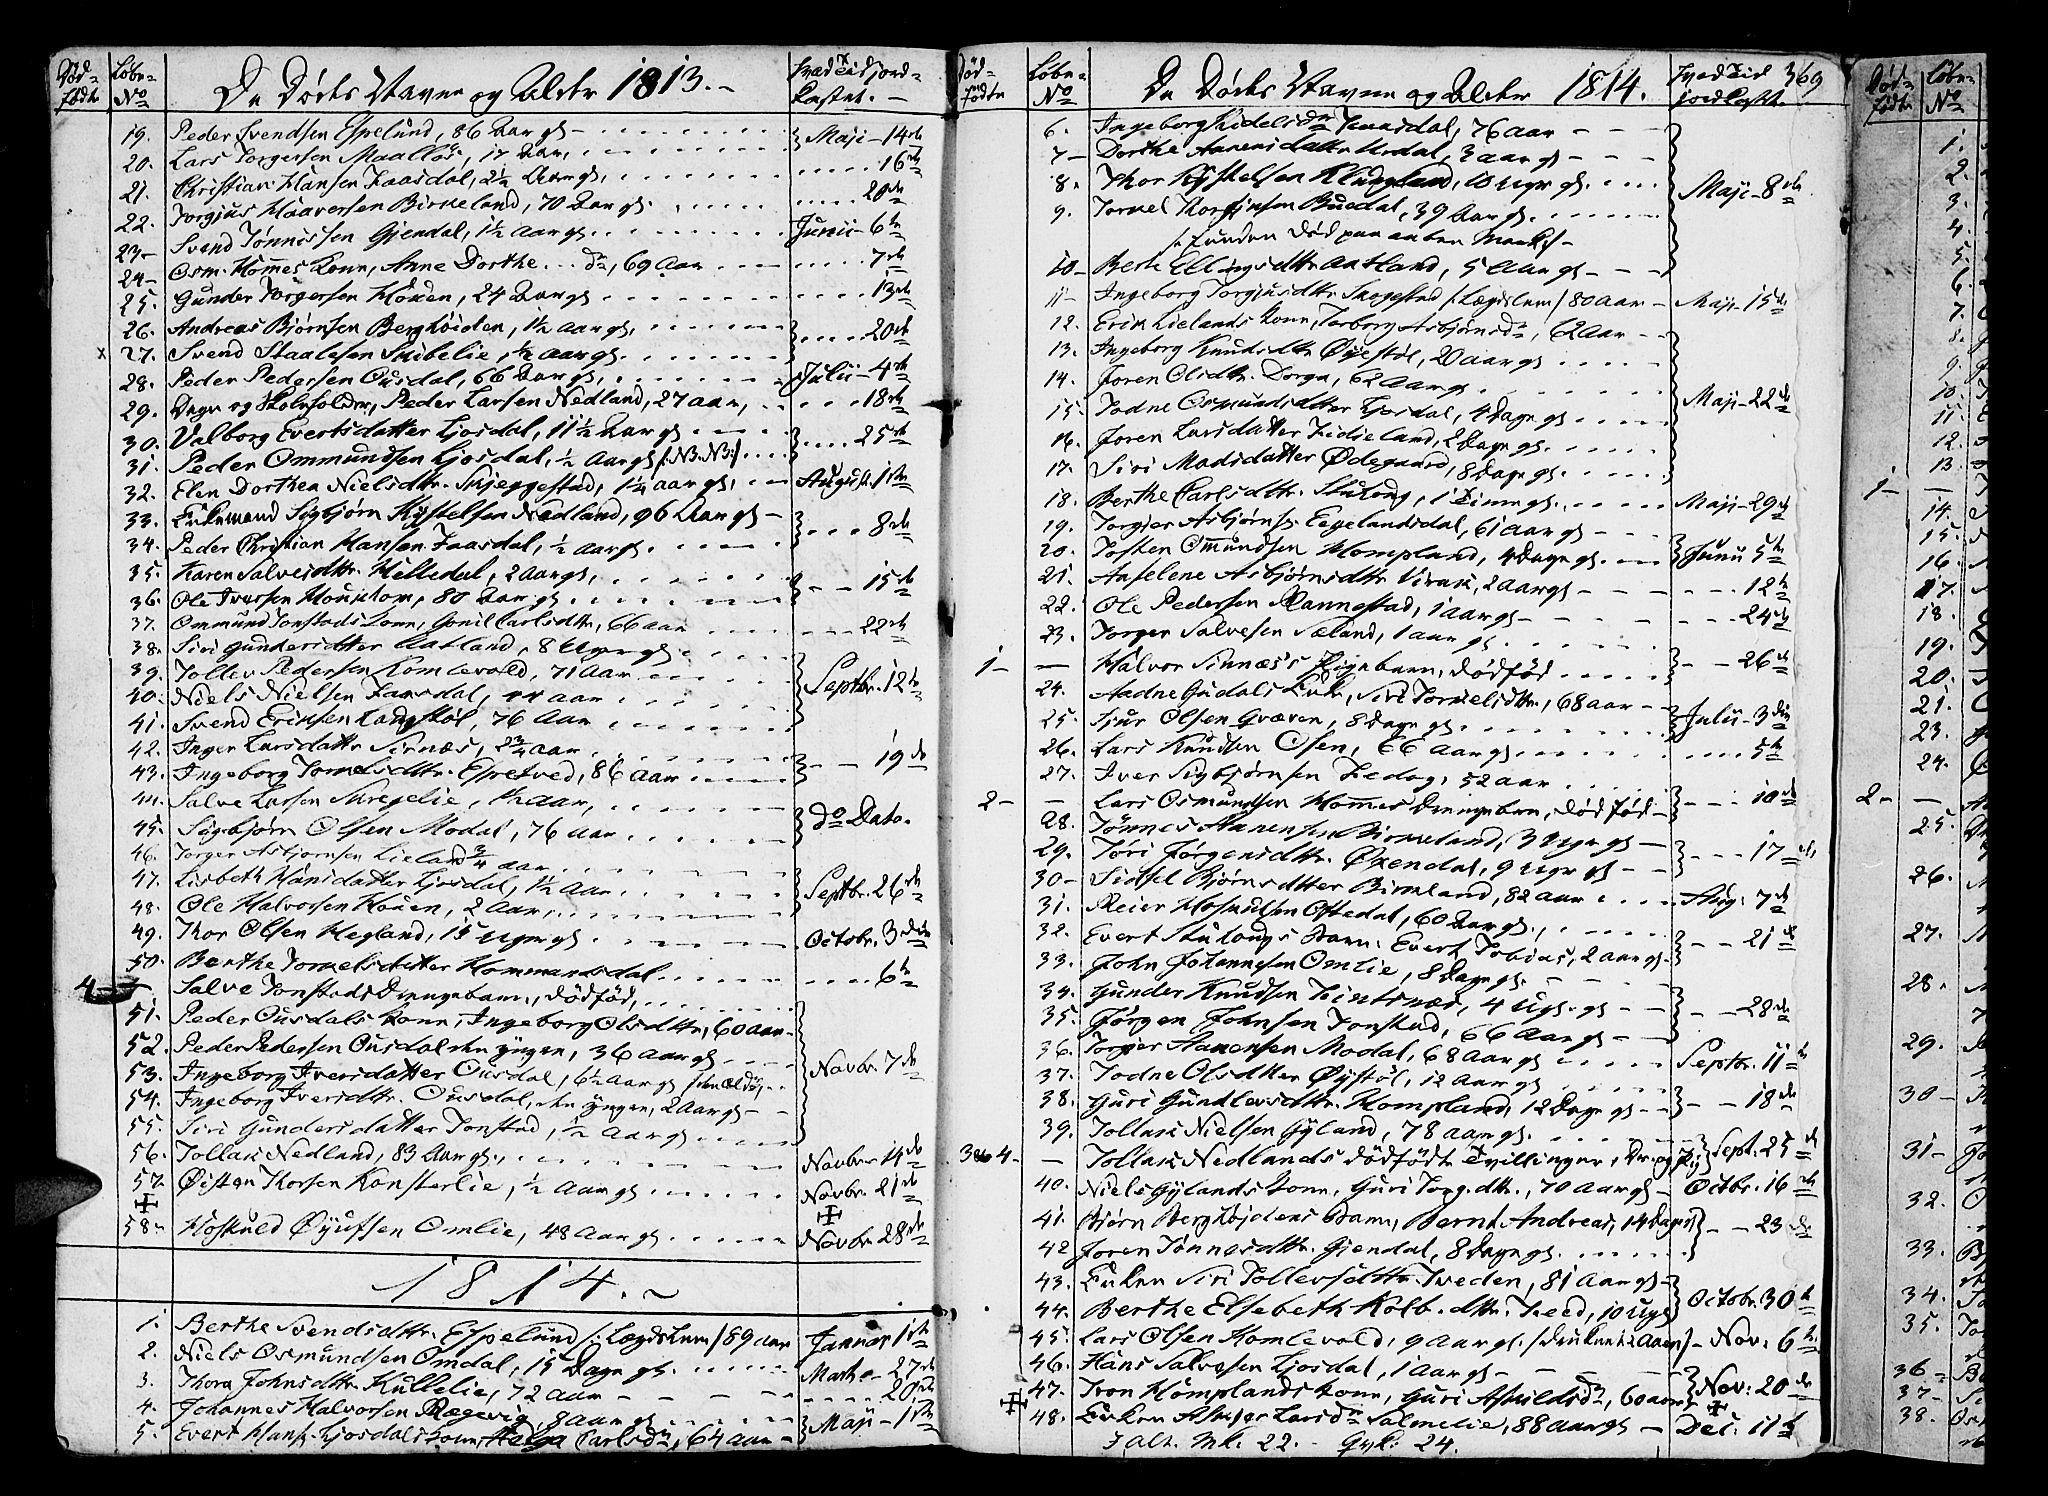 Død-fødte
Løbe-No
De Dødes Navne og Alder 1813.-
Hvad Tid jord-kastet.-
19. Peder Svendsen Espelund, 86 Aar gl. } Maji - 14de
20. Lars Torgersen Maalløs, 17 Aar,
21. Christian Hansen Faasdal, 2½ Aar gl. 16de
22. Torgius Haaversen Birkeland, 70 Aar gl. 20de
23- Svend Tønnessen Gjendal, 1½ Aar gl. Junii - 6te
24- Osm. Hommes Kone, Anne Dorthe ... dr, 69 Aar 7de
25. Gunder Torgersen Houen, 24 Aar gl. 13de
26. Andreas Bjørnsen Berghøiden, 1½ Aar gl. } 20de
x 27. Svend Staalesen Skibelie, ½ Aar gl.
28. Peder Pedersen Ousdal, 66 Aar gl. Julii - 4de
29. Degn og Skoleholder, Peder Larsen Nedland, 27 Aar, 18de
30. Valborg Evertsdatter Liosdal, 11½ Aar gl. } 25de
31. Peder Ommundsen Liosdal, ½ Aar gl. /: NB. NB:/
32. Elen Dorthea Nielsdttr. Skjeggestad, 1¼ Aar gl. August 1ste
33. Enkemand Sigbjørn Kystelsen Nedland, 96 Aar gl - } 8de
34. Peder Christian Hansen Faasdal, ½ Aar gl.
35. Karen Salvesdttr. Helledal, 2 Aar gl. } 15de
36. Ole Iversen Houkom, 80 Aar gl.
37. Ommund Tonstads Kone, Gonil Carlsdttr, 66 Aar 22de
38. Siri Gundersdtter Aatland, 8 Uger gl.
39. Tollev Pedersen Komlevold, 71 Aar } Septbr. 12te
40. Niels Nielsen Faasdal, 44 Aar
41. Svend Eriksen Langstøl, 76 Aar
42. Inger Larsdattr Sirnæs, 2¾ Aar } 19de
43. Ingeborg Tormelsdttr. Espetved, 86 Aar
44. Salve Larsen Skregelie, 1½ Aar, } do Dato.
45. Sigbjørn Olsen Modal, 76 Aar
46. Torger Asbjørnsen Lieland ¾ Aar
47. Lisbeth Hansdatter Liosdal, 1½ Aar } Septbr. 26de
48. Ole Halvorsen Houen, 2 Aar,
49. Thor Olsen Hegland, 15 Uger gl. Octobr. 3die
50. Berthe Tormelsdatter Hommansdal 6te
4 - Salve Tonstads Drengebarn, dødfød,
51. Peder Ousdals Kone, Ingeborg Olsdttr, 60 Aar } Novbr. 7de
52. Peder Pedersen Ousdal den yngre, 36 Aar gl
53. Ingeborg Iversdatter Ousdal, 6½ Aar gl /: den ældre
54. Ingeborg Iversdttr. Ousdal, den yngre, 2 Aar gl
55. Siri Gundersdatter Tonstad, ½ Aar gl
56. Tollak Nedland, 83 Aar gl., Novbr - 14de
57. Øisten Thorsen Konsterlie, ½ Aar gl Novbr. 21de
58- Hoskuld Øyufsen Omlie, 48 Aar gl Novbr. 28de
1814.
1. Berthe Svendsdttr. Espelund /: Lægdslem / 89 Aar Januar 1ste
2. Niels Osmundsen Omdal, 15 Dage gl. Marts - 27de
3. Thora Johnsdttr. Kullelie, 72 Aar 20de
4. Johannes Halvorsen Rægevig, 8 Aar gl. } Maji - 1ste
5. Evert Hans. Liosdals Kone, Helga Carlsdr, 64 Aar
Død-fødte
Løbe-No
De Dødes Navne og Alder 1814.
Hvad Tid jordkast.
369
6. Ingeborg Fidelsdr Faasdal, 76 Aar } Maji - 8de
7- Dorthe Aanensdatter Urdal, 3 Aar gl
8. Thor Kystelsen Klungland, 10 Uger gl.
9. Tormel Thorsjnsen Buedal, 39 Aar gl.
/: funden død paa aaben Mark :/
10- Berte Ellingsdttr Aatland, 5 Aar gl
11- Ingeborg Torgiusdttr Skogestad /: Lægdslem / 80 Aar Maji - 15de
12. Erik Lielands Kone, Torborg Asbjørnsdr, 62 Aar
13. Ingeborg Knudsdttr Øyestøl, 20 Aar gl } Maji - 22de
14. Joren Olsdttr. Dorga, 62 Aar gl
15. Todne Osmundsdatter Liosdal, 4 Dage gl
16. Joren Larsdatter Fidieland, 2 Dage gl.
17. Siri Madsdatter Ødegaard, 8 Dage gl.
18. Berthe Carlsdttr. Stulong, 1 Time gl. Maji - 29de
19. Torgier Asbjørns. Eegelandsdal, 61 Aar gl
20. Tosten Omundsen Hompland, 4 Dage gl. } Junii 5te
21. Anselene Asbjørnsdttr Virak, 2 Aar gl 12te
22. Ole Pedersen Rannestad, 1 Aar gl 24de
23. Torger Salvesen Sæland, 1 Aar gl. } 26de
1- - Halvor Sinnæs's Pigebarn, dødfød
24. Aadne Gudals Enke, Siri Tormelsdttr., 68 Aar } Julii - 3die
25. Siur Olsen Græven, 8 Dage gl.
26. Lars Knudsen Osen, 66 Aar gl. 5te
27. Iver Sigbjørnsen Fedog, 52 Aar } 10de
2- - Lars Osmundsen Hommes Drengebarn, dødfød
28. Tønnes Aanensen Birkeland, 3 Uger gl } 17de
29. Tøri Jørgensdttr. Øxendal, 9 Uger gl
30- Sidsel Bjørnsdtter Birkeland, 82 Aar Aug: 7de
31. Reier Hoskulsen Oftedal, 60 Aar gl. } 21de
32. Evert Stulongs Barn: Evert Tobias, 2 Aar gl
33. John Johannesen Omlie, 8 Dage gl. } 28de
34. Gunder Knudsen Fintsnæs, 4 Uger. gl
35. Jørgen Johnsen Tonstad, 66 Aar gl
36. Torgier Aanensen Modal, 68 Aar gl Septbr. 11te
37. Todne Olsdtter Øystøl, 12 Aar gl } 18de
38. Guri Gundlersdttr. Hompland, 12 Dage gl
39. Tollak Nielsen Gyland, 78 Aar gl. } Sept. 25de
3 & 4 - Tollak Nedlands dødfødte Tvillinger, Dr. og Pig
40. Niels Gylands Kone, Guri Torg.dttr., 70 Aar gl - Octbr. 16de
41. Biørn Berghøjdens Barn, Bernt Andreas, 14 Dage } 23de
42 Joren Tønnesdttr. Gjendal, 8 Dage gl.
43. Enken Siri Tollevsdttr. Tveden, 81 Aar gl } Octobr. 30te
44. Berthe Elsebeth Kolb. dttr. Tveed, 10 Uger
45. Lars Olsen Komlevold, 9 Aar gl. /: druknet i Aaen / - Nov: 6te
46. Hans Salvesen Liosdal, 1 Aar gl } Nov: 20de
47. Tron Homplands Kone, Guri Askildsdr, 60 Aar
48. Enken Asborg Larsdr Salmelie, 88 Aar gl - Dec: 11te
I alt. Mk: 22. - Qvk: 24.
Død-fødte
Løbe-No
1.
2.
3.
4.
5.
6.
7.
8.
9.
10.
11.
12.
13.
1-
14.
15.
16.
17.
18.
19.
20.
21.
23.
24.
2-
25.
26.
27.
28.
29.
30-
31-
32.
33.
34.
35.
36-
37-
38.